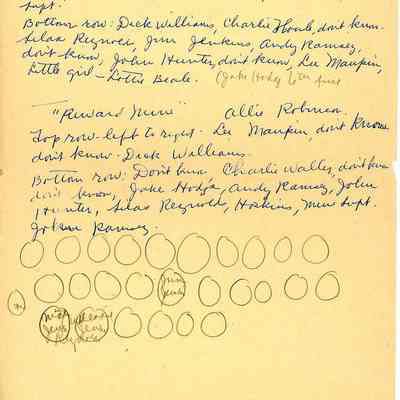 Supt.
Bottom row: Dick Williams, Charlie Houk, don't know
Silas Reynolds, Jim Jenkins, Andy Ramsey,
don't know, John Hunter, don't know, Lee Maupin,
Little girl - Lottie Beale. (Jake Hodge
"Reward Mine" Allie Robinson
Top row - left to right - Lee Maupin, don't know
don't know - Dick Williams.
Bottom row: Don't know, Charlie Walles, don't know
don't know, Jake Hodge, Andy Ramsey, John
Hunter, Silas Reynolds, Hoskins, Mine Supt.
Ramsey.